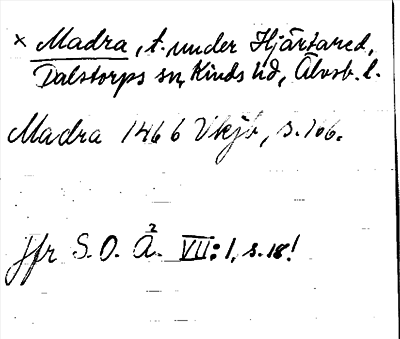 × Madra, t. under Hjärtared,
Dalstorps sn, Kinds hd, Älvsb. l.
Madra 1466 Vkjb, s. 166.
Jfr S. O. Ä.² VII: 1, s. 18!